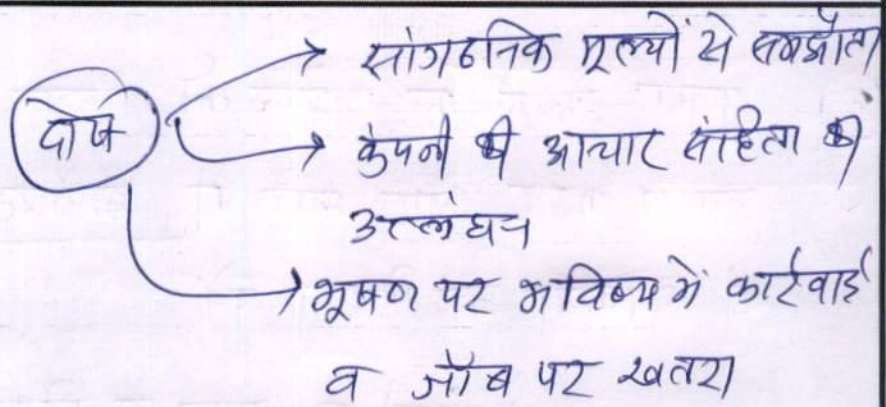 दोष
सांगठनिक मूल्यों से समझौता
कंपनी की आचार संहिता का
उल्लंघन
भूषण पर भविष्य में कार्रवाई
व जॉब पर खतरा